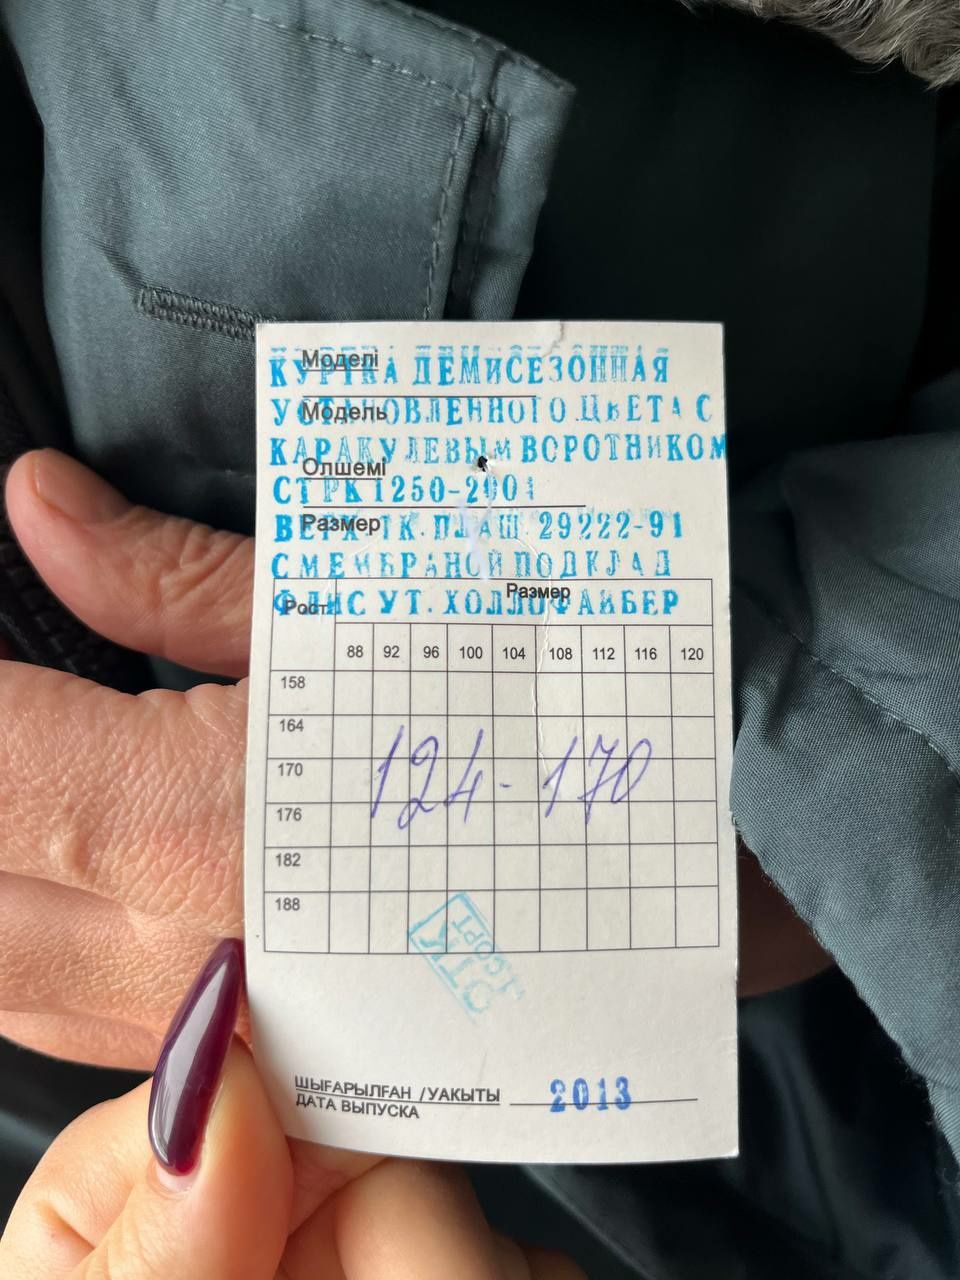 Моделі
КУРТКА ДЕМИСЕЗОННАЯ
Модель
УСТАНОВЛЕННОГО ЦВЕТА С
КАРАКУЛЕВЫМ ВОРОТНИКОМ
Олшемі
СТ РК 1250-2001
Размер
ВЕРХ-ТК. ПЛАЩ. 29222-91
С МЕМБРАНОЙ ПОДКЛАД
Рост Размер
ФЛИС УТ. ХОЛЛОФАЙБЕР
88 92 96 100 104 108 112 116 120
158
164
170
124-170
176
182
188
ОТК
СОРТ
ШЫҒАРЫЛҒАН /УАКЫТЫ
ДАТА ВЫПУСКА
2013